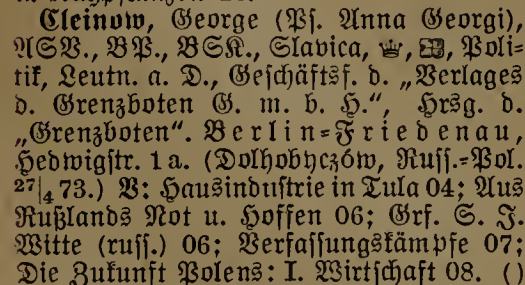 Cleinow, George (Ps. Anna Georgi),
ASV., BP., BSK., Slavica, ♛, Poli=
tik, Leutn. a. D., Geschäftsf. d. „Verlages
d. Grenzboten G. m. b. H.", Hrsg. d.
„Grenzboten". Berlin=Friedenau,
Hedwigstr. 1a. (Dolhobyczów, Russ.=Pol.
27|4 73.) V: Hausindustrie in Tula 04; Aus
Rußlands Not u. Hoffen 06; Grf. S. J.
Witte (russ.) 06; Verfassungskämpfe 07;
Die Zukunft Polens: I. Wirtschaft 08. ()